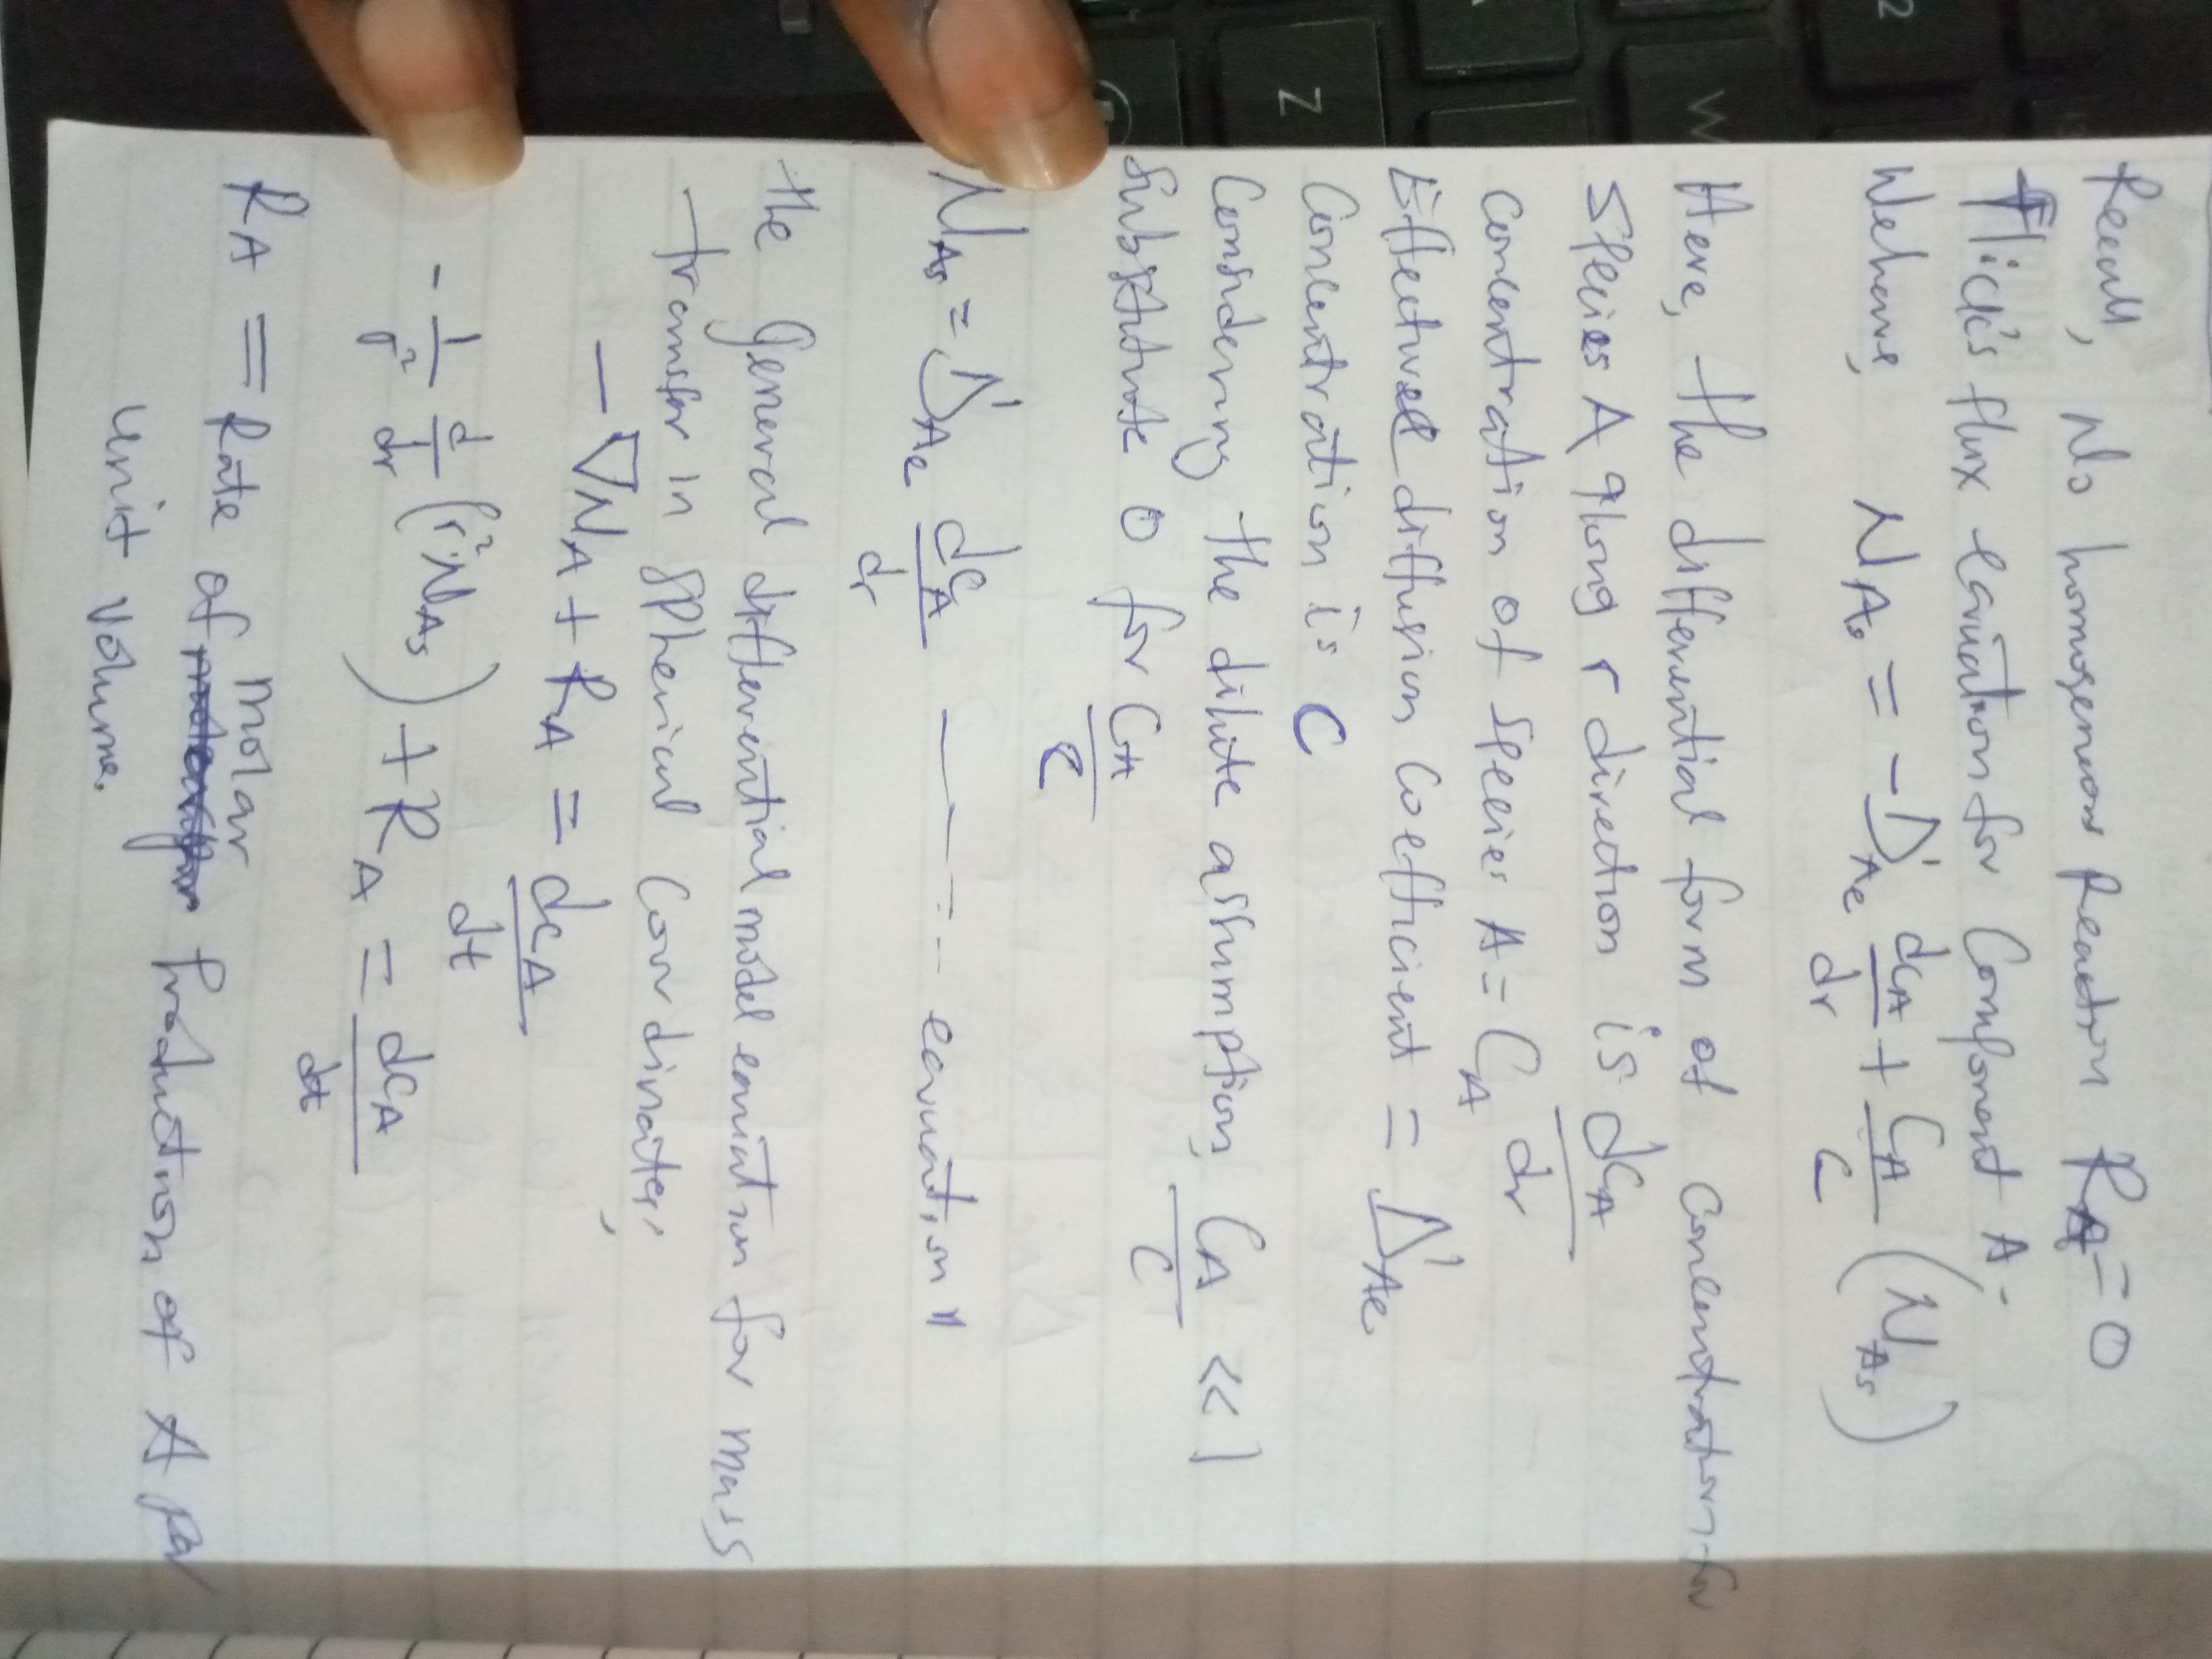 Recall, No homogeneous Reaction R_A = 0
Flick's flux equation for Component A-
We have, N_Ar = - D_Ae dC_A/dr + C_A/C (N_Ar)
Here, the differential form of concentration for
Species A along r direction is dC_A/dr
Concentration of Species A = C_A
Effective diffusion Coefficient = D_Ae
Concentration is C
Considering the dilute assumption, C_A/C << 1
Substitute 0 for C_A/C
N_Ar = D_Ae dC_A/dr ———--- equation 11
the General differential model equation for mass
transfer in Spherical Coordinates,
- ∇N_A + R_A = dC_A/dt
- 1/r² d/dr (r²N_Ar) + R_A = dC_A/dt
R_A = Rate of molar Production of A per
unit volume.
Z
W
2